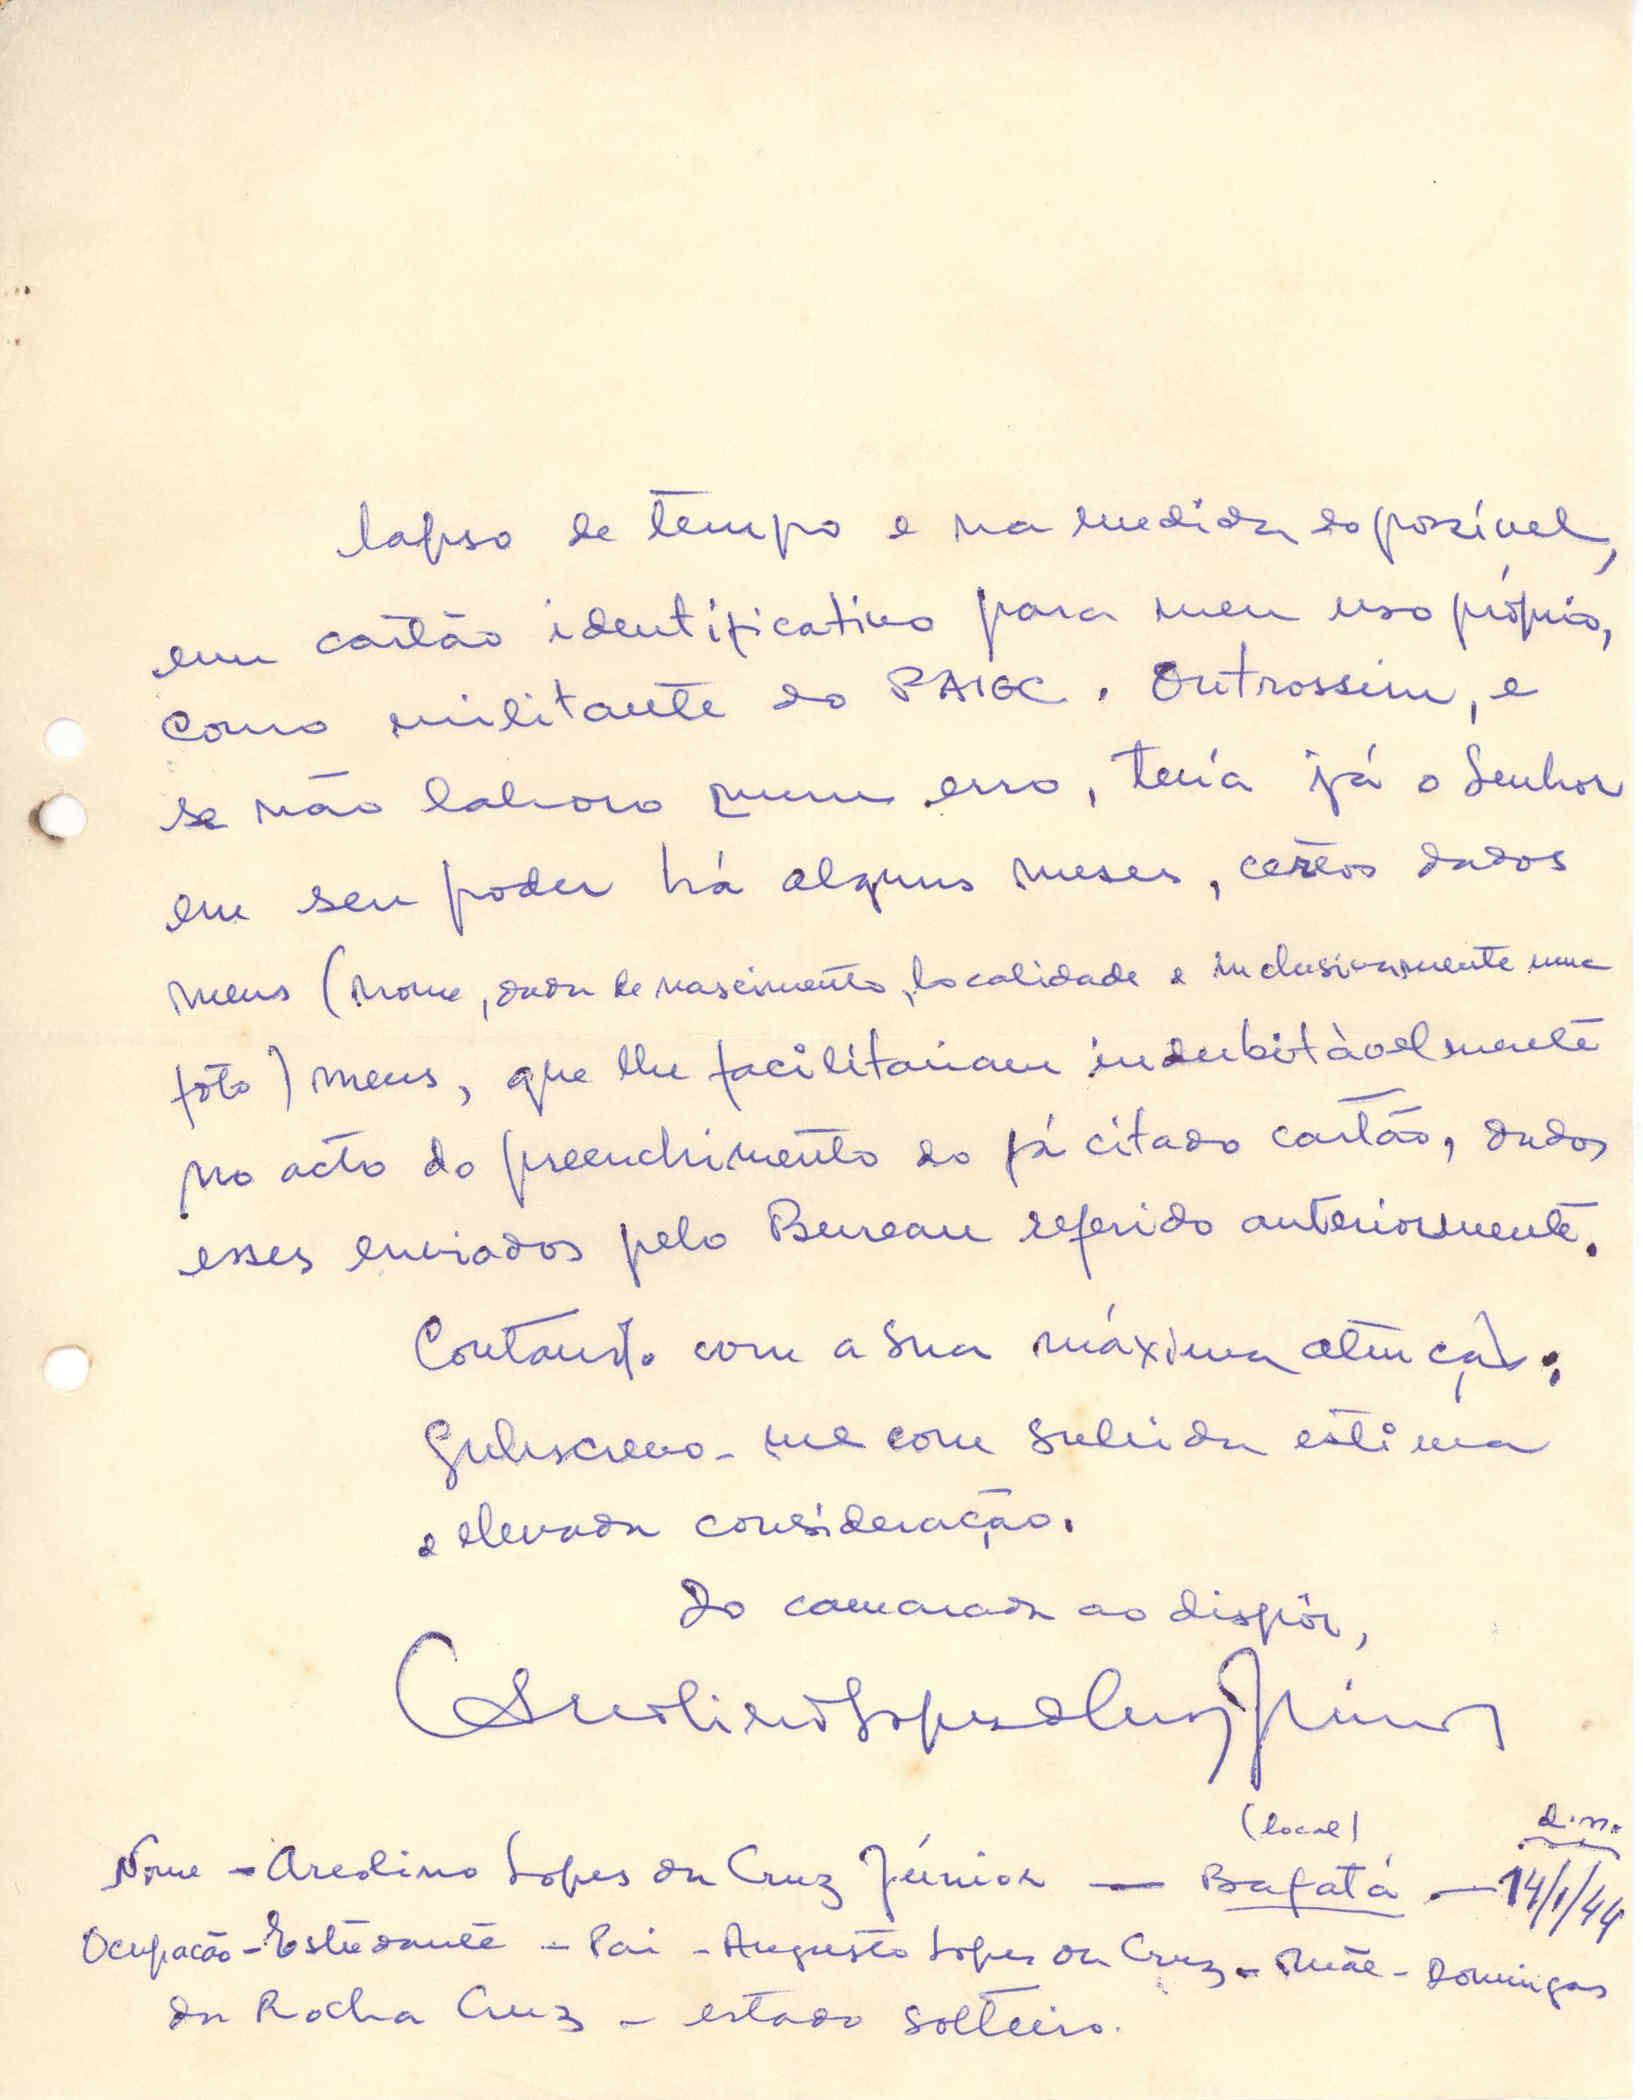 lapso de tempo e na medida do possível,
um cartão identificativo para meu uso próprio,
como militante do PAIGC. Outrossim, e
se não laboro num erro, teria já o Senhor
em seu poder há alguns meses, certos dados
meus (nome, data de nascimento, localidade e inclusivamente uma
foto) meus, que lhe facilitariam indubitàvelmente
no acto do preenchimento do já citado cartão, dados
esses enviados pelo Bureau referido anteriormente.
Contando com a sua máxima atenção,
Subscrevo-me com subida estima
e elevada consideração.
Do camarada ao dispôr,
Areolino Lopes da Cruz Júnior
(local) d.n.
Nome - Areolino Lopes da Cruz Júnior — Bafatá — 14/1/44
Ocupacão - Estudante - Pai - Augusto Lopes da Cruz - Mãe - Domingas
da Rocha Cruz - estado solteiro.